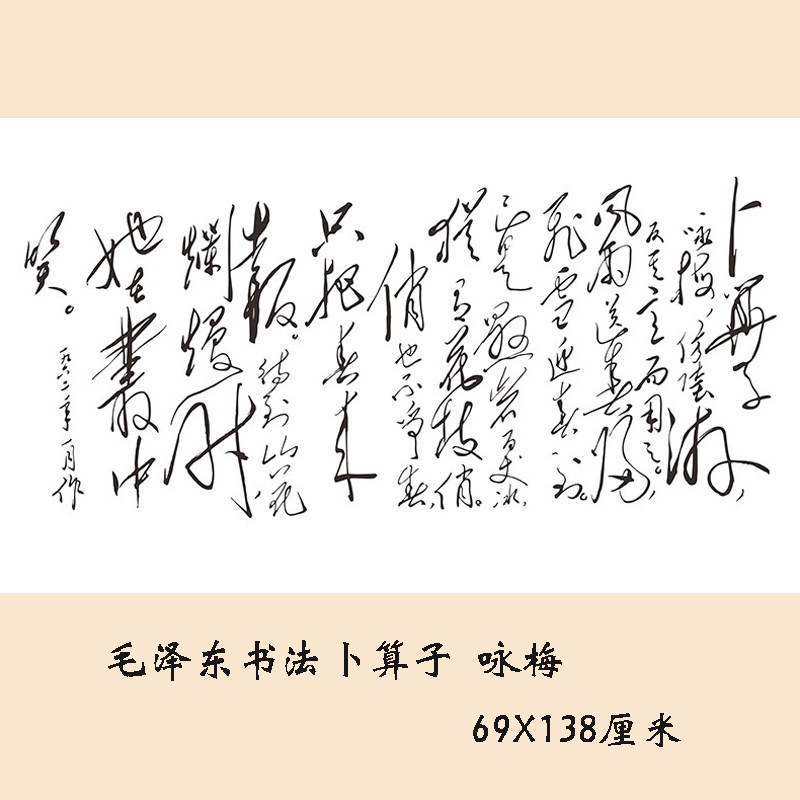 卜算子
咏梅，仿陸游，
反其意而用之。
風雨送春歸，
飛雪迎春到。
已是懸岩百丈冰，
猶有花枝俏。
俏也不争春，
只把春来
報。待到山花
爛熳时，
她在叢中
笑。
一九六二年一月作
毛泽东书法卜算子 咏梅
69X138厘米